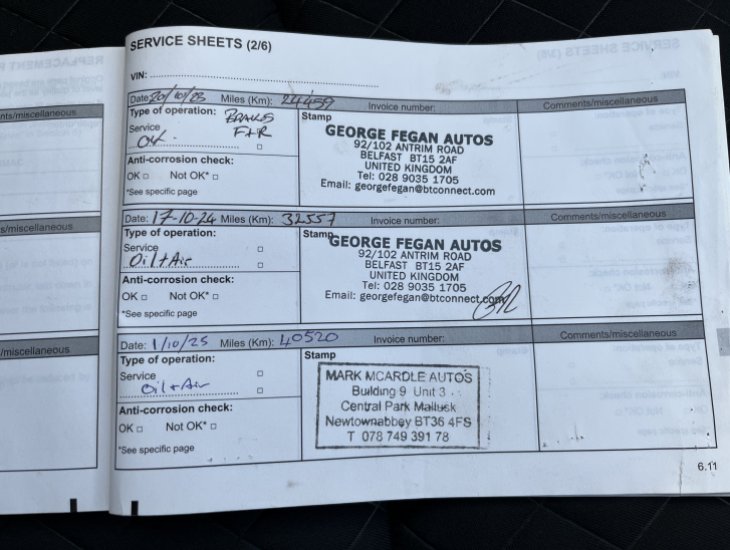 REPLACEMENT
s/miscellaneous
s/miscellaneous
/miscellaneous
SERVICE SHEETS (2/6)
VIN:
Date: 20/10/23 Miles (Km): 24459 Invoice number: Comments/miscellaneous
Type of operation: BRAKES
Service F+R
Oil
Anti-corrosion check:
OK □ Not OK* □
*See specific page
Stamp
GEORGE FEGAN AUTOS
92/102 ANTRIM ROAD
BELFAST BT15 2AF
UNITED KINGDOM
Tel: 028 9035 1705
Email: georgefegan@btconnect.com
Date: 17-10-24 Miles (Km): 32557 Invoice number: Comments/miscellaneous
Type of operation:
Service □
Oil + Air □
Anti-corrosion check:
OK □ Not OK* □
*See specific page
Stamp
GEORGE FEGAN AUTOS
92/102 ANTRIM ROAD
BELFAST BT15 2AF
UNITED KINGDOM
Tel: 028 9035 1705
Email: georgefegan@btconnect.com
Date: 1/10/25 Miles (Km): 40520 Invoice number: Comments/miscellaneous
Type of operation:
Service □
Oil + Air □
Anti-corrosion check:
OK □ Not OK* □
*See specific page
Stamp
MARK MCARDLE AUTOS
Building 9 Unit 3
Central Park Mallusk
Newtownabbey BT36 4FS
T 078 749 391 78
6.11